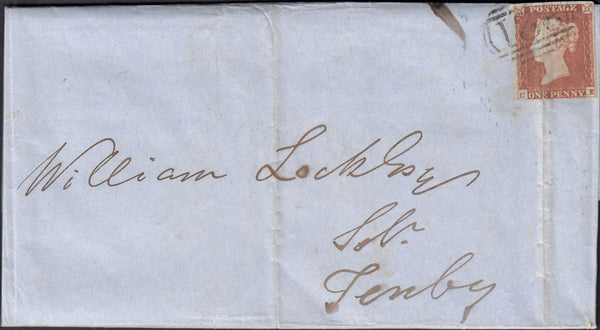 POSTAGE
C E
ONE PENNY
William Lock Esq
Solr.
Tenby